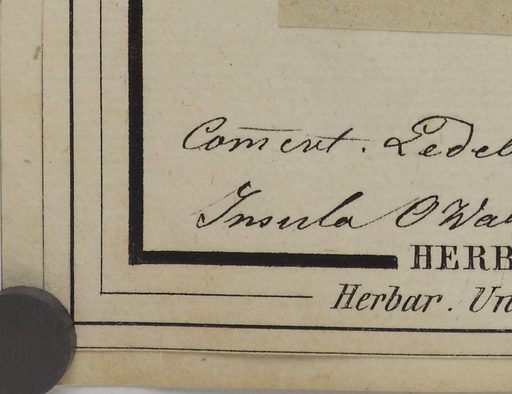 Com̅ent. Ledeb
Insula OWa
HERB
Herbar. Un